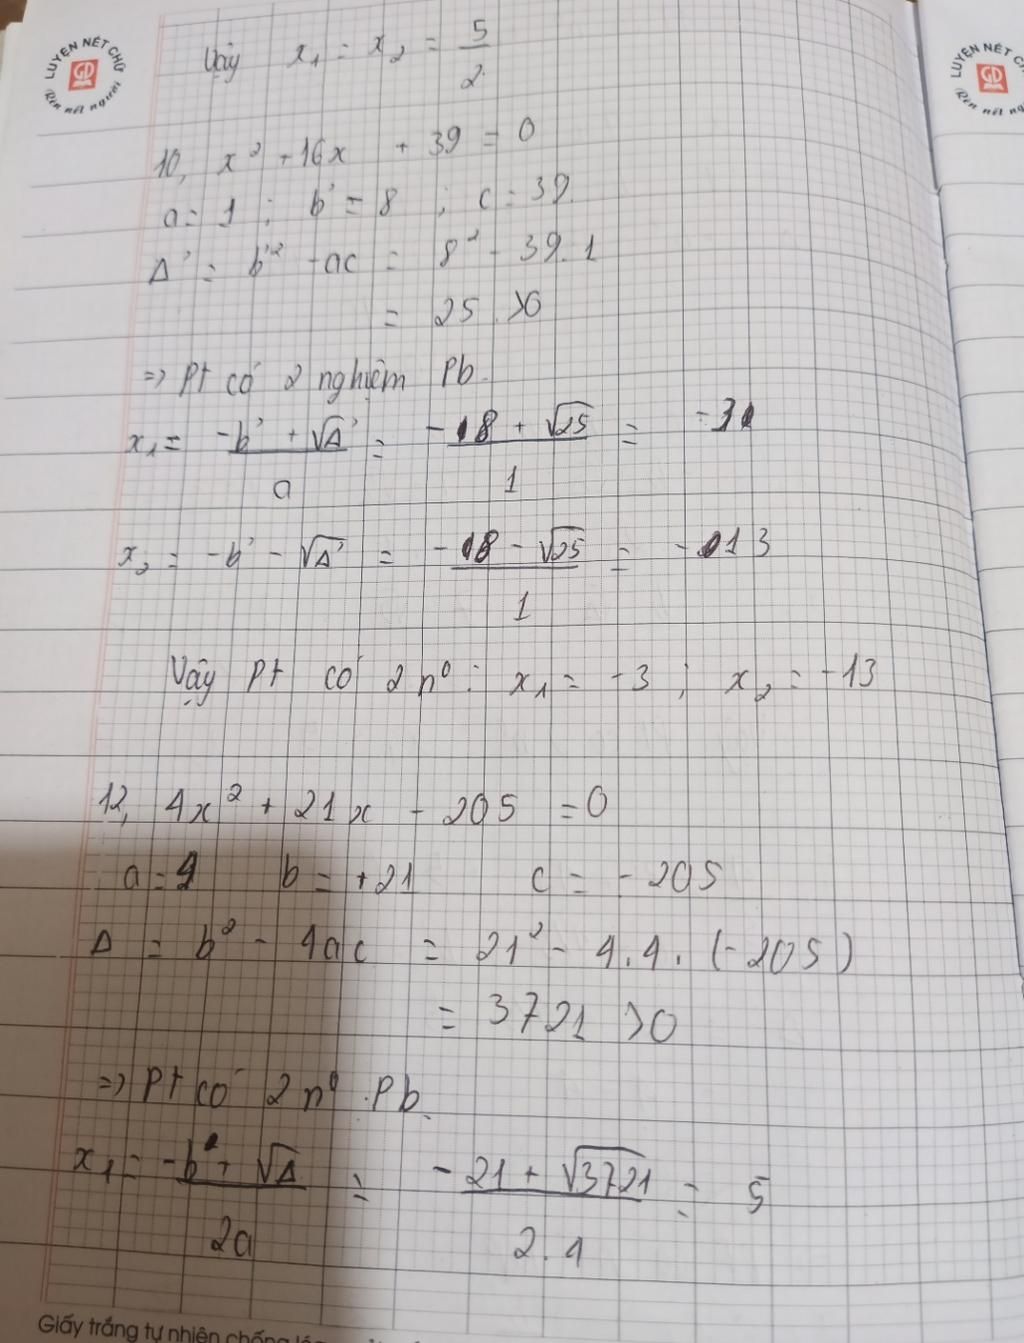 LUYỆN NÉT CHỮ
GD
Rèn nết người
LUYỆN NÉT CH
GD
Rèn nết ng
Vậy x₁ = x₂ = 5/2
10, x² + 16x + 39 = 0
a = 1 ; b' = 8 ; c = 39.
Δ' = b'² - ac = 8² - 39.1
= 25 >0
=> Pt có 2 nghiệm Pb.
x₁ = (-b' + √Δ')/a = (-8 + √25)/1 = -3
x₂ = -b' - √Δ' = (-8 - √25)/1 = -13
Vậy Pt có 2 n⁰ : x₁ = -3 ; x₂ = -13
12, 4x² + 21x - 205 = 0
a = 4 b = +21 c = - 205
Δ = b² - 4ac = 21² - 4.4.(-205)
= 3721 >0
=> Pt có 2 n⁰ Pb.
x₁ = (-b + √Δ)/2a = (-21 + √3721)/2.4 = 5
Giấy trắng tự nhiên chống